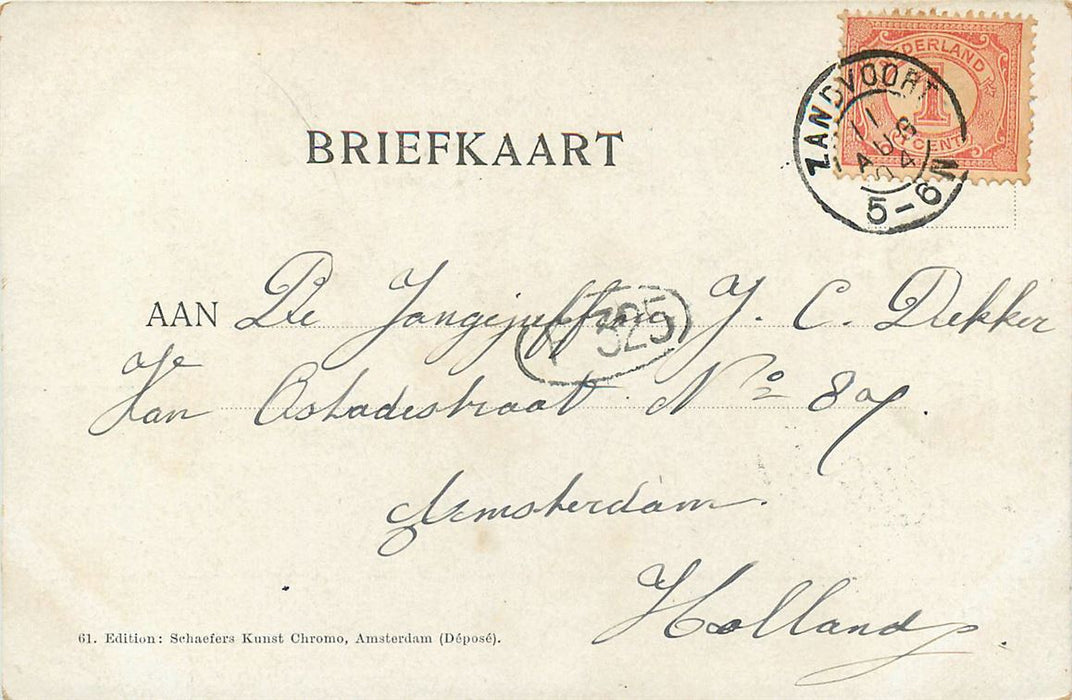 NEDERLAND
1
CENT
ZANDVOORT
11
AUG
04
5-6N
BRIEFKAART
AAN De Jongejuffrouw J. C. Dekker
325
Van Ostadestraat No 87.
Amsterdam.
Holland.
61. Edition: Schaefers Kunst Chromo, Amsterdam (Déposé).